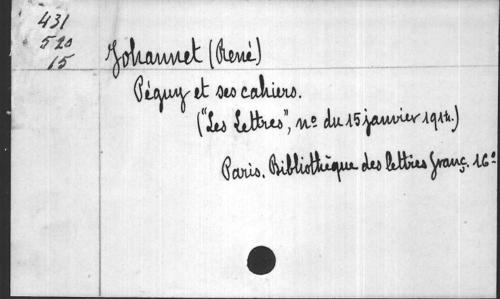 431
520
15
Johannet (René)
Péguy et ses cahiers.
("Les Lettres", nº du 15 janvier 1914.)
Paris. Bibliothèque des lettres franç. 16º